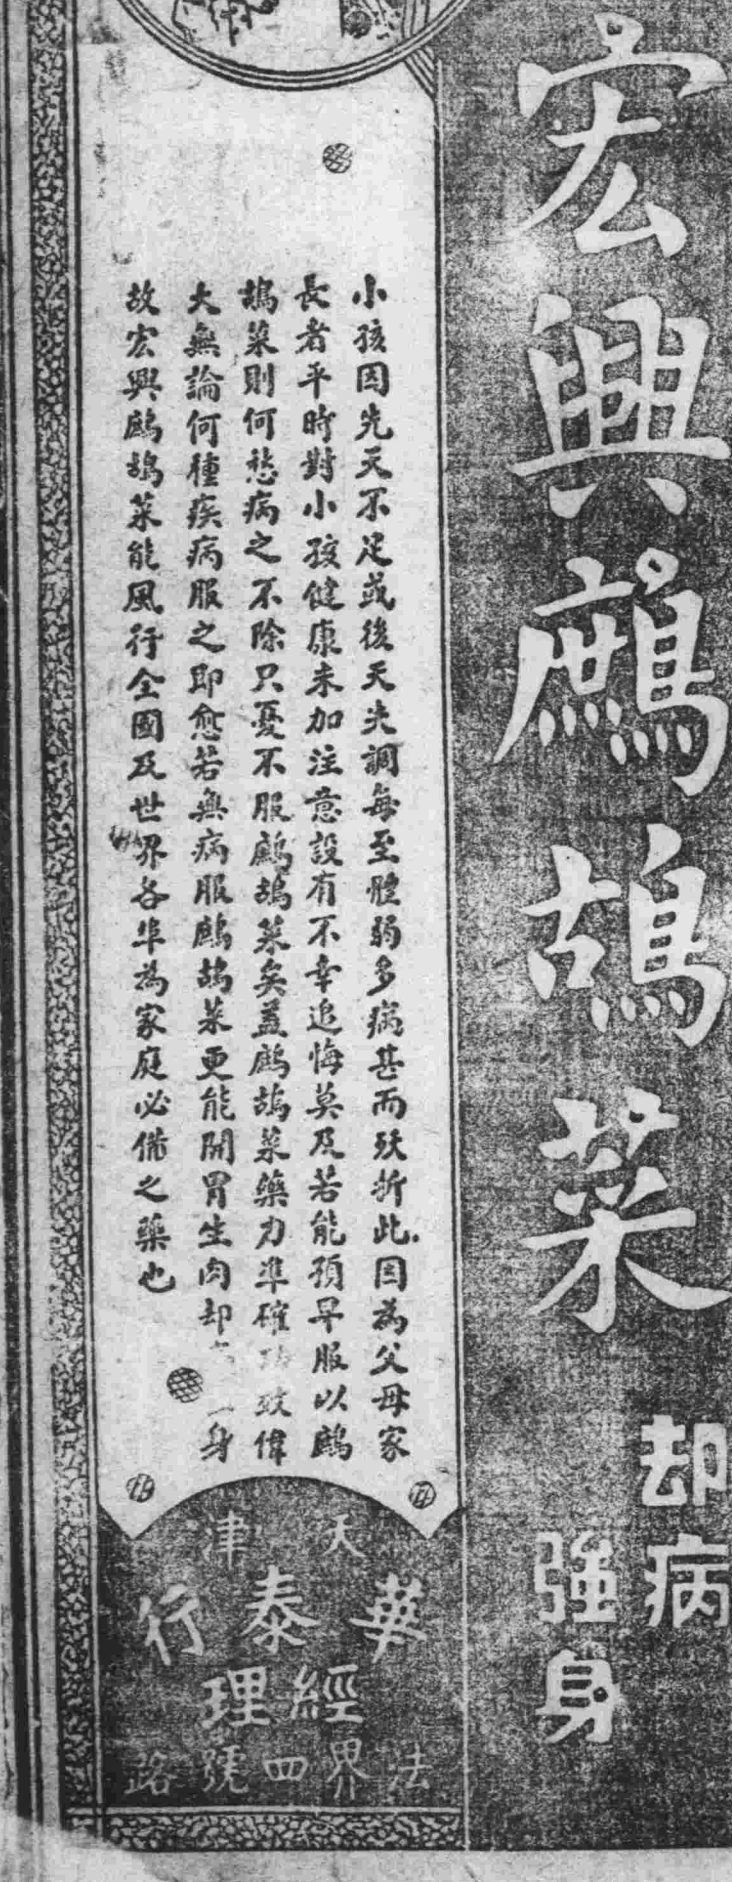 宏興鷓鴣菜
却病
強身
小孩因先天不足或後天失調每至體弱多病甚而殀折此因為父母家
長者平時對小孩健康未加注意設有不幸追悔莫及若能預早服以鷓
鴣菜則何愁病之不除只憂不服鷓鴣菜矣蓋鷓鴣菜藥力準確功效偉
大無論何種疾病服之即愈若無病服鷓鴣菜更能開胃生肉却身
故宏興鷓鴣菜能風行全國及世界各埠為家庭必備之藥也
天津
華泰行
經理
法界四號路